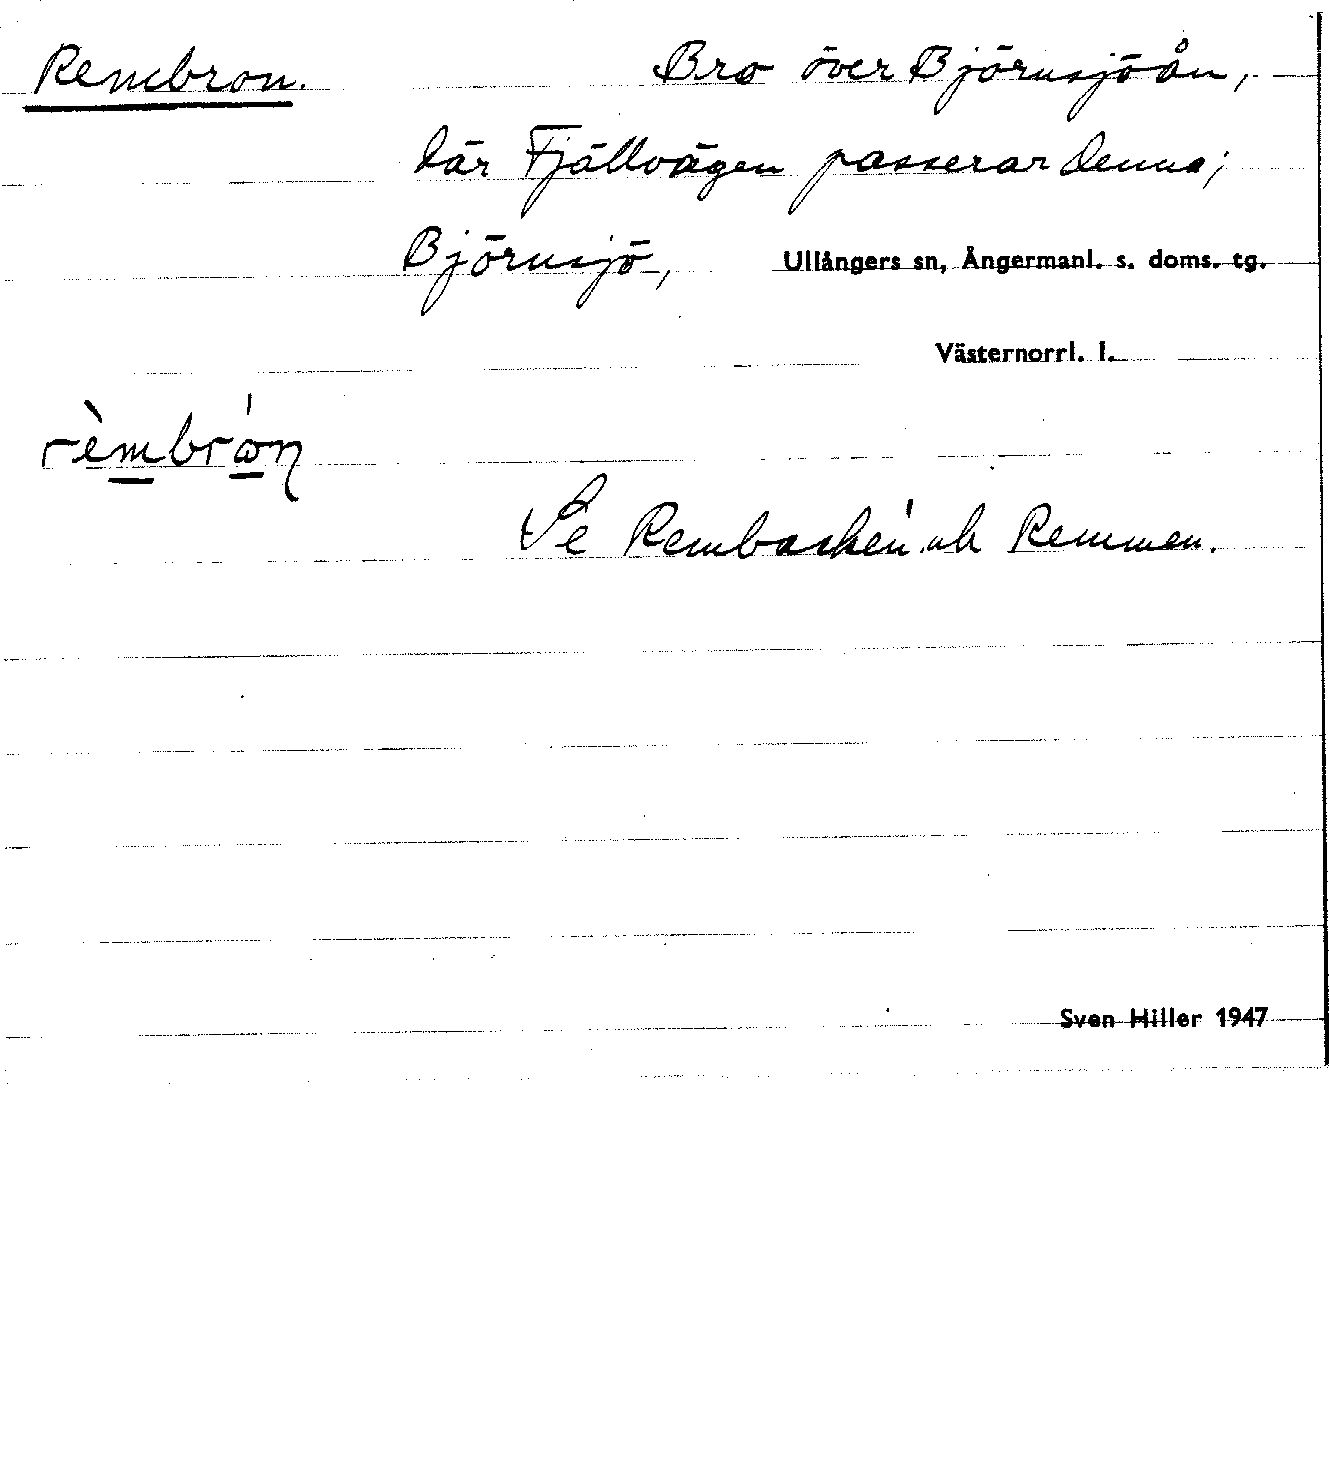 Rembron. Bro över Björnsjöån,
där Fjällvägen passerar denna;
Björnsjö, Ullångers sn, Ångermanl. s. doms. tg.
Västernorrl. l.
rèmbrω̍n
Se Rembacken och Remmen.
Sven Hiller 1947